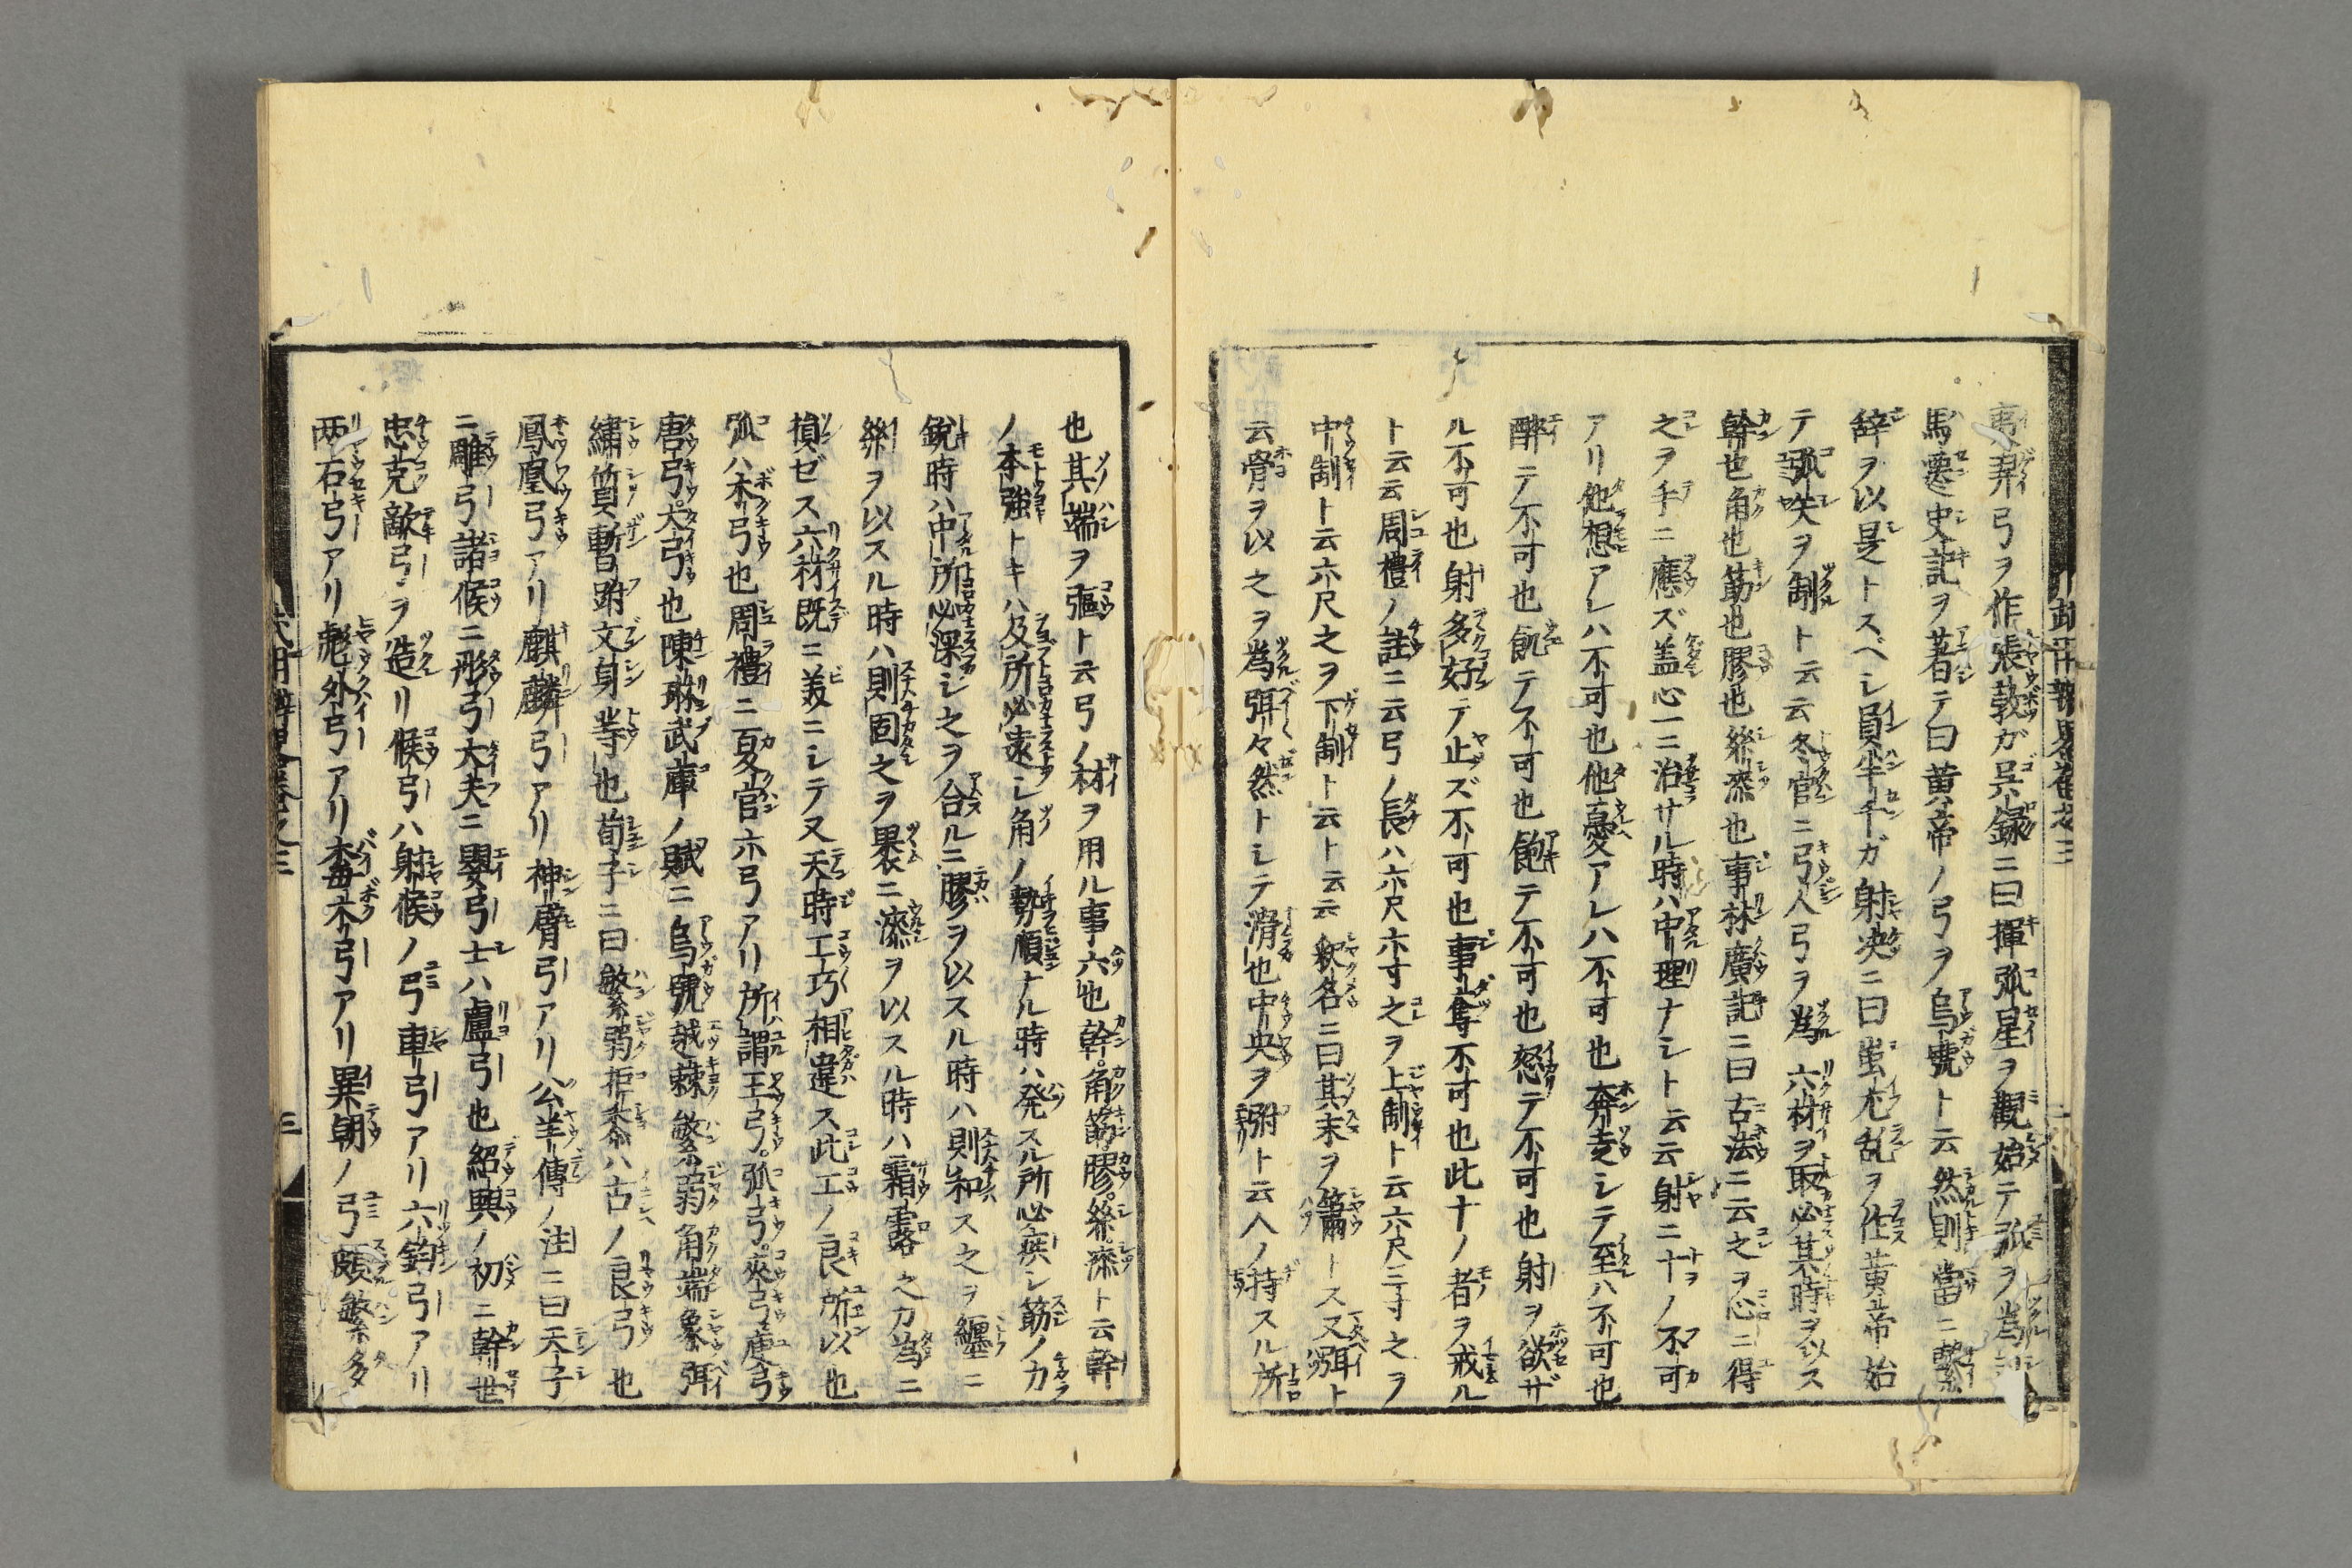 夷羿弓ヲ作張敦ガ呉録ニ曰揮弧星ヲ觀始テ弧ヲ為
馬遷史記ヲ著テ曰黄帝ノ弓ヲ烏號ト云然則當ニ繋
辞ヲ以是トスベシ員半千ガ射决ニ曰蚩尤乱ヲ作黄帝始
テ弧矢ヲ制ト云云冬官ニ弓人弓ヲ為六材ヲ取必其時ヲ以ス
幹也角也筋也膠也絲漆也事林廣記ニ曰古法ニ云之ヲ心ニ得
之ヲ手ニ應ズ盖心一ニ治サル時ハ中理ナシト云云射ニ十ノ不可
アリ他想アレハ不可也他憂アレハ不可也奔走シテ至ハ不可也
醉テ不可也飢テ不可也飽テ不可也怒テ不可也射ヲ欲ザ
ル不可也射多好テ止ズ不可也事奪不可也此十ノ者ヲ戒ル
ト云云周禮ノ註ニ云弓ノ長ハ六尺六寸之ヲ上制ト云六尺三寸之ヲ
中制ト云六尺之ヲ下制ト云ト云云釈名ニ曰其末ヲ簫トス又弭ト
云骨ヲ以之ヲ為弭々然トシテ滑也中央ヲ弣ト云人ノ持スル所
也其端ヲ彄ト云弓ノ材ヲ用ル事六也幹角筋膠絲漆ト云幹
ノ本強トキハ及所必遠シ角ノ勢順ナル時ハ発スル所必疾シ筋ノ力
鋭時ハ中所必深シ之ヲ合ルニ膠ヲ以スル時ハ則和ス之ヲ纏ニ
絲ヲ以スル時ハ則固之ヲ褁ニ漆ヲ以スル時ハ霜露之カ為ニ
損ゼス六材既ニ美ニシテ又天時工巧相違ス此工ノ良所以也
弧ハ木弓也周禮ニ夏官六弓アリ所謂王弓弧弓夾弓庾弓
唐弓大弓也陳琳武庫ノ賦ニ烏號越棘繁弱角端象弭
繍質晢弣文身等也荀子ニ曰繁弱拒黍ハ古ノ良弓也
鳳凰弓アリ麒麟弓アリ神臂弓アリ公羊傳ノ注ニ曰天子
ニ雕弓諸候ニ彤弓大夫ニ嬰弓士ハ盧弓也紹興ノ初ニ幹世
忠克敵弓ヲ造リ候弓ハ射候ノ弓車弓アリ六鈞弓アリ
两石弓アリ麃外弓アリ梅木弓アリ異朝ノ弓頗繁多